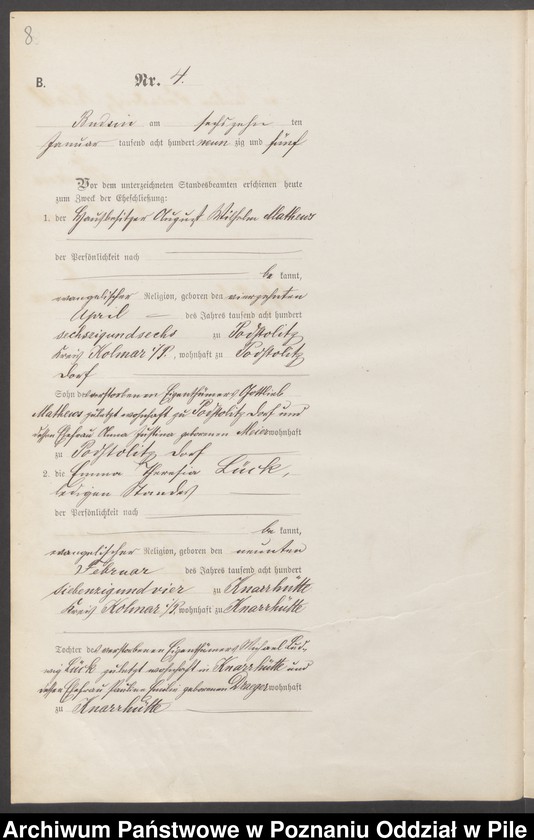 8
B. Nr. 4.
Budsin am sechszehn ten
Januar tausend acht hundert neun zig und fünf
Vor dem unterzeichneten Standesbeamten erschienen heute
zum Zweck der Eheschließung:
1. der Hausbesitzer August Wilhelm Matheus
der Persönlichkeit nach
be kannt,
evangelischer Religion, geboren den vierzehnten
April des Jahres tausend acht hundert
sechszigundsechs zu Podstolitz
Kreis Kolmar i/P., wohnhaft zu Podstolitz
Dorf
Sohn des verstorbenen Eigenthümers Gottlieb
Matheus zuletzt wohnhaft zu Podstolitz Dorf und
dessen Ehefrau Anna Justina geborenen Meier wohnhaft
zu Podstolitz Dorf
2. die Emma Theresia Lück,
ledigen Standes
der Persönlichkeit nach
be kannt,
evangelischer Religion, geboren den neunten
Februar des Jahres tausend acht hundert
siebenzigundvier zu Knarrhütte
Kreis Kolmar i/P, wohnhaft zu Knarrhütte
Tochter des verstorbenen Eigenthümers Michael Lud-
wig Lück zuletzt wohnhaft in Knarrhütte und
dessen Ehefrau Pauline Emilie geborenen Draeger wohnhaft
zu Knarrhütte
Archiwum Państwowe w Poznaniu Oddział w Pile